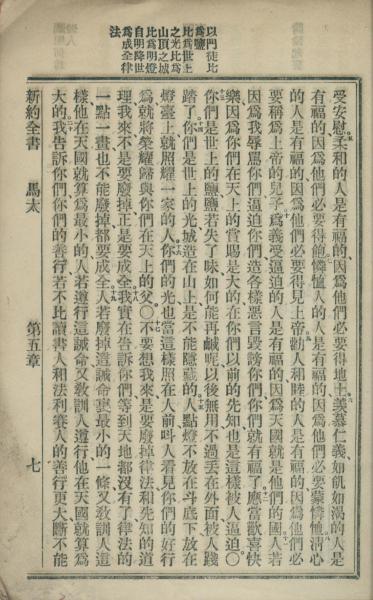 以門徒比
爲鹽
比爲世上
之光比爲
山頂之城
比爲明燈
自明降世
爲成全律
法
受安慰柔和的人是有福的因爲他們必要得地土羨慕仁義如飢如渴的人是
有福的因爲他們必要得飽憐恤人的人是有福的因爲他們必要蒙憐恤淸心
的人是有福的因爲他們必要得見上帝勸人和睦的人是有福的因爲他們必
要稱爲上帝的兒子爲義受逼迫的人是有福的因爲天國就是他們的國人若
因爲我辱罵你們逼迫你們造各樣惡言毀謗你們你們就有福了應當歡喜快
樂因爲你們在天上的賞賜是大的在你們以前的先知也是這樣被人逼迫〇
你們是世上的鹽鹽若失了味如何能再鹹呢以後無用不過丟在外面被人踐
踏了你們是世上的光城造在山上是不能隱藏的人點燈不放在斗底下放在
燈臺上就照耀一家的人你們的光也當這樣照在人前叫人看見你們的好行
爲就將榮耀歸與你們在天上的父〇不要想我來是要廢掉律法和先知的道
理我來不是要廢掉正是要成全我實在告訴你們等到天地都沒有了律法的
一點一畫也不能廢掉都要成全人若廢掉這誡命裏最小的一條又敎訓人這
樣他在天國就算爲最小的人若遵行這誡命又敎訓人遵行他在天國就算爲
大的我告訴你們你們的善行若不比讀書人和法利賽人的善行更大斷不能
新約全書 馬太 第五章 七